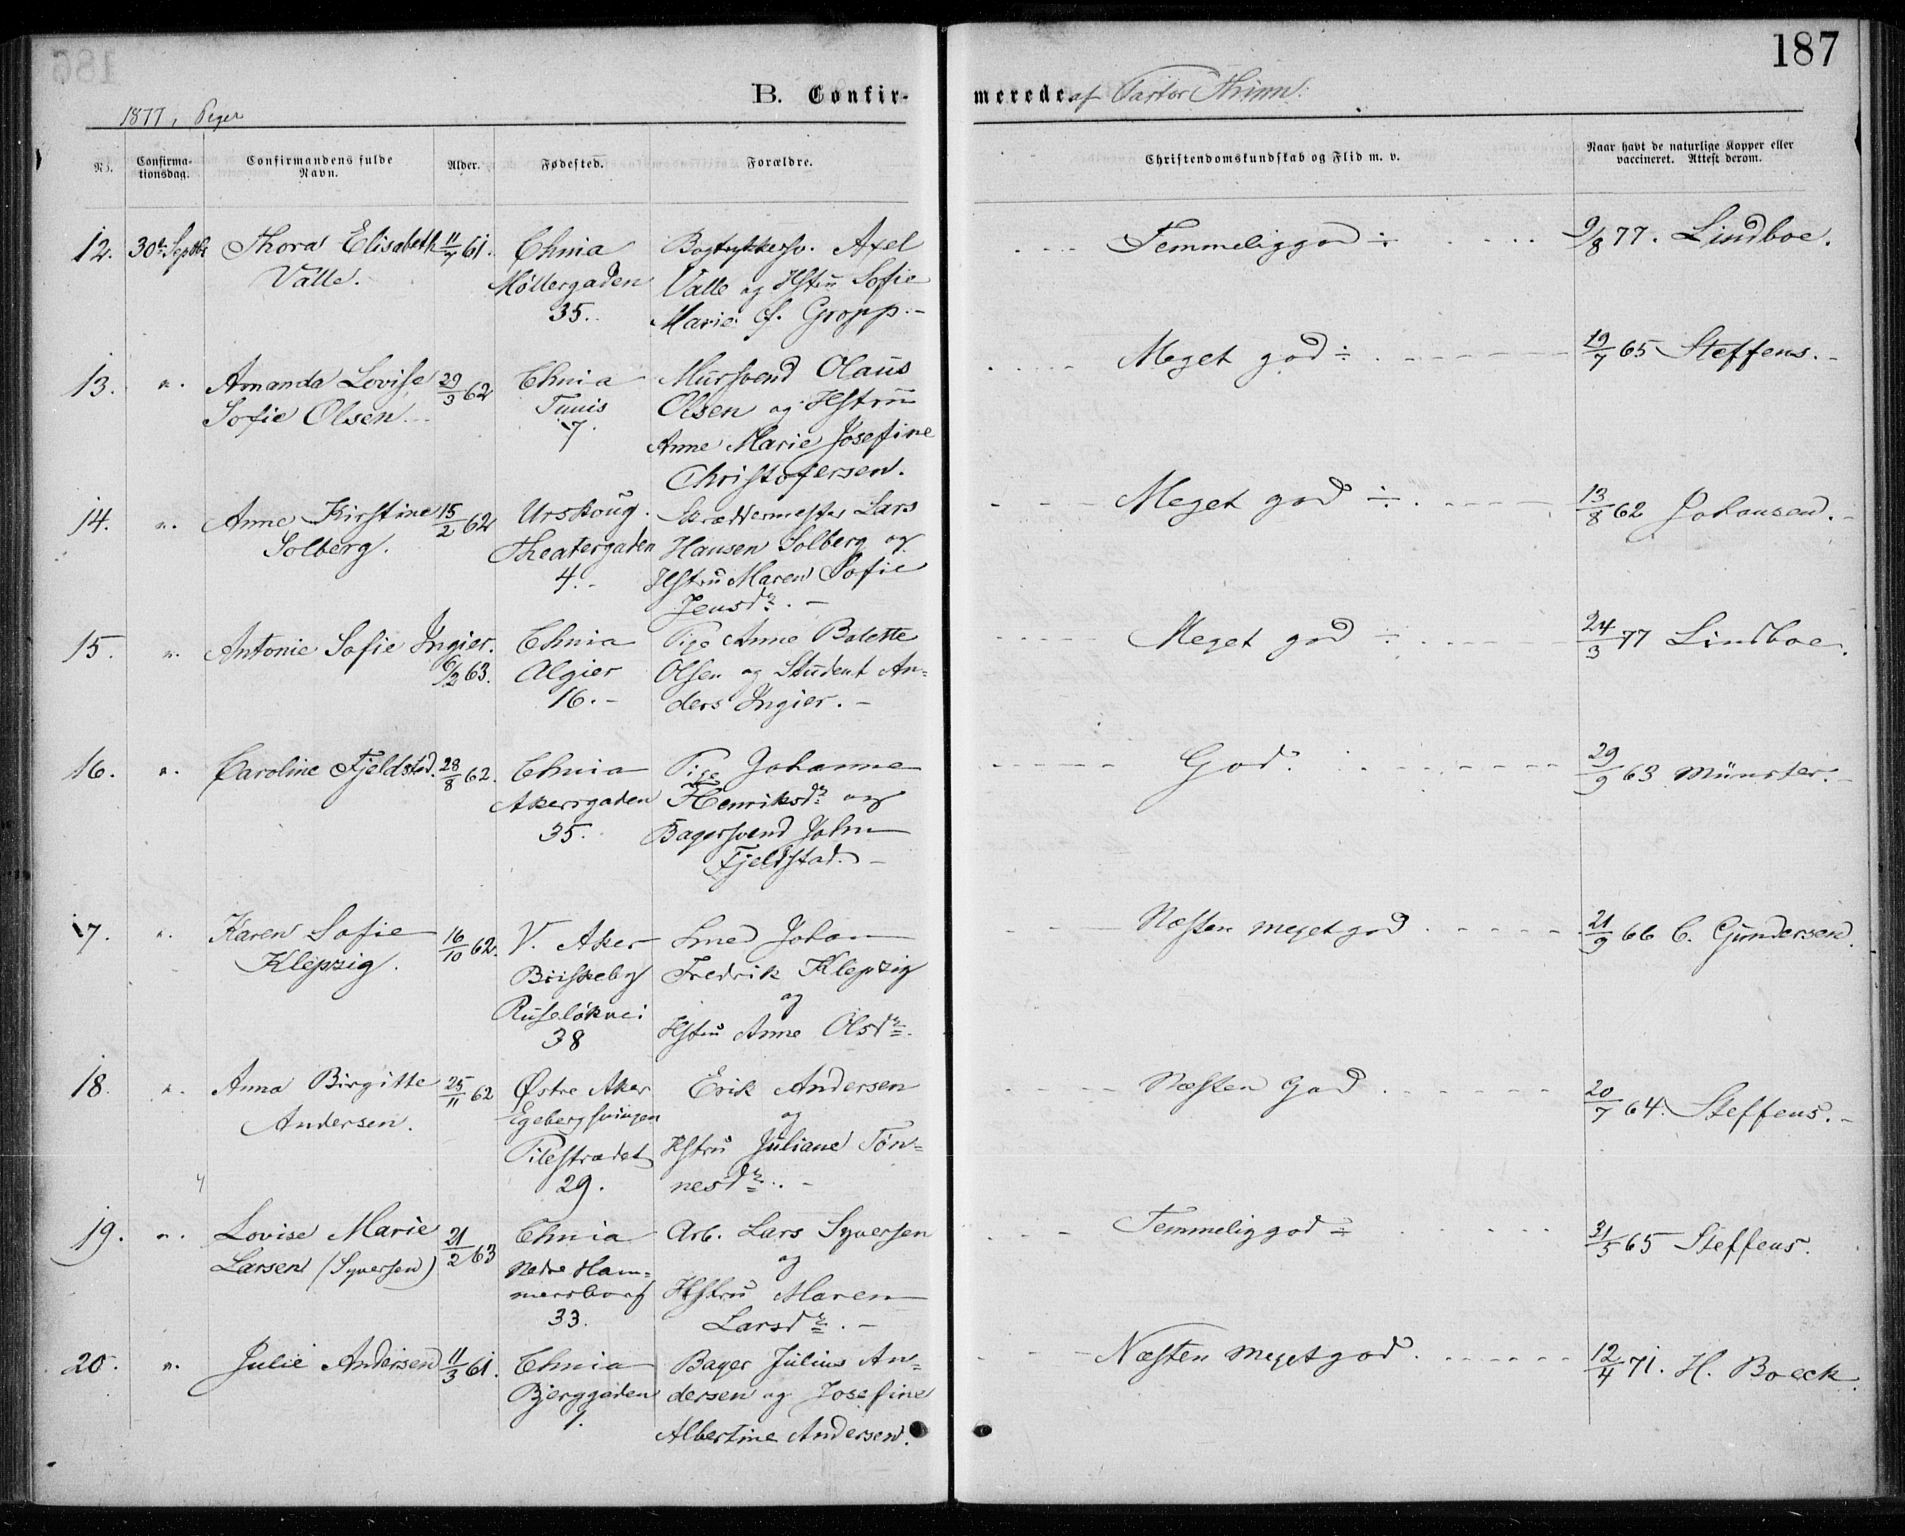 187
B. Confirmerede af Pastor Thinn:
1877, Piger
No.
Confirmationsdag.
Confirmandens fulde Navn.
Alder.
Fødested.
Forældre.
Christendomskundskab og Flid m. v.
Naar havt de naturlige Kopper eller vaccineret. Attest derom.
12. 30te Septbr Thora Elisabeth 11/7 61. Chnia Bogtrykkersv. Axel Temmelig god ÷ 9/8 77. Lindboe.
Valle. Møllergaden Valle og Hstru Sofie
35. Marie f. Gropp. -
13. ". Amanda Lovise 29/3 62 Chnia Mursvend Olaus Meget god ÷ 19/7 65 Steffens. -
Sofie Olsen. Tunis Olsen og Hstru
7. Anne Marie Josefine
Christofersen.
14. ". Anne Kirstine 15/2 62 Urskoug. Skræddermester Lars Meget god ÷ 13/8 62 Johansen. -
Solberg. Theatergaden Hansen Solberg og
4. - Hstru Maren Sofie
Jensdr. -
15. ". Antonie Sofie Ingier. Chnia Pige Anne Bolette Meget god ÷ 24/3 77 Lindboe.
6/2 63. Algier Olsen og Student An-
16. - ders Ingier. -
16. ". Caroline Fjeldstad. 28/8 62. Chnia Pige Johanne God. 29/9 63 Münster. -
Akersgaden Henriksdr og
35. Bagersvend John
Fjeldstad. -
17. ". Karen Sofie 16/10 62. V. Aker Smed Johan Næsten meget god 21/9 66 C. Gundersen.
Klepzig. Briskeby Fredrik Klepzig
Ruseløkvei og
38 Hstru Anne Olsdr.
18. ". Anna Birgitte 25/11 62 Østre Aker Erik Andersen Næsten God 20/7 64. Steffens. -
Andersen. Egebergsvingen og
Pilestrædet Hstru Juliane Tøn-
29. nesdr. -
19. ". Lovise Marie 21/2 63 Chnia Arb. Lars Syversen Temmelig god ÷ 31/5 65 Steffens.
Larsen (Syversen) Nedre Ham- og
mersborg Hstru Maren
33. Larsdr. -
20. ". Julie Andersen 11/3 61. Chnia Bager Julius An- Næsten meget god 12/4 71. H. Boeck.
Bjerggaden dersen og Josefine
1. Albertine Andersen.